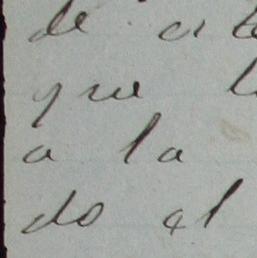 de
que
a la
do el